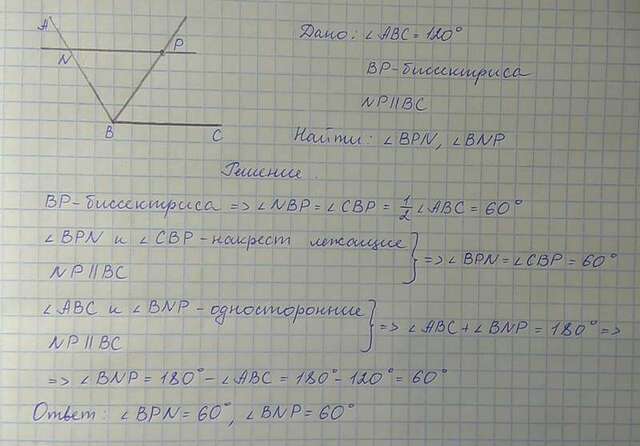 A
N
P
B
C
Дано: ∠ABC = 120°
BP-биссектриса
NP || BC
Найти: ∠BPN, ∠BNP
Решение.
BP-биссектриса => ∠NBP = ∠CBP = 1/2 ∠ABC = 60°
∠BPN и ∠CBP - накрест лежащие
NP || BC
} => ∠BPN = ∠CBP = 60°
∠ABC и ∠BNP - односторонние
NP || BC
} => ∠ABC + ∠BNP = 180° =>
=> ∠BNP = 180° - ∠ABC = 180° - 120° = 60°
Ответ: ∠BPN = 60°, ∠BNP = 60°